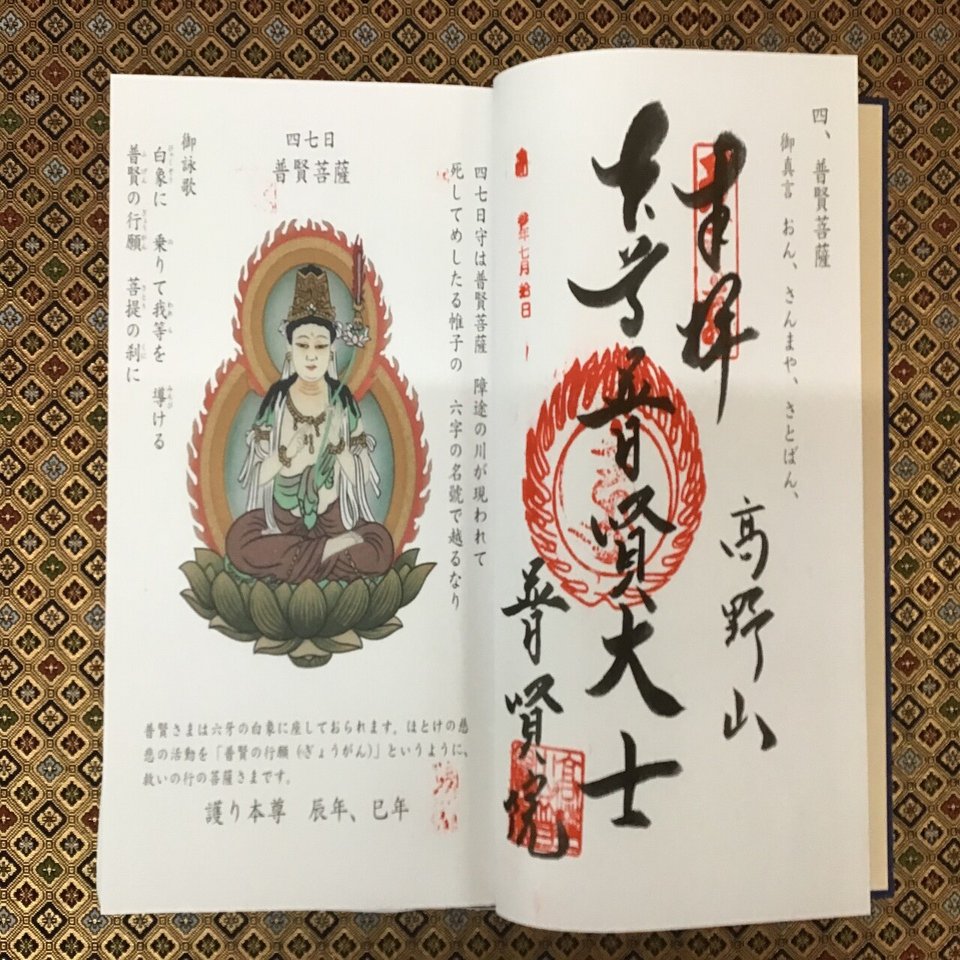 四、普賢菩薩
御真言 おん、さんまや、さとばん、
奉拝
高野山
本尊普賢大士
普賢院
年七月拾日
四七日
普賢菩薩
四七日守は普賢菩薩 障途の川が現われて
死してめしたる帷子の 六字の名號で越るなり
御詠歌
白象に 乗りて我等を 導ける
普賢の行願 菩提の刹に
普賢さまは六牙の白象に座しておられます。ほとけの慈
悲の活動を「普賢の行願(ぎょうがん)」というように、
救いの行の菩薩さまです。
護り本尊 辰年、巳年